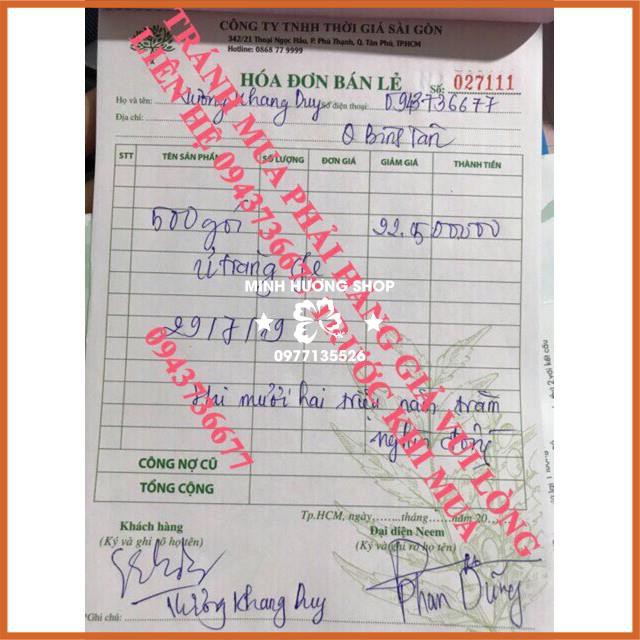 CÔNG TY TNHH THỜI GIÁ SÀI GÒN
342/21 Thoại Ngọc Hầu, P. Phú Thạnh, Q. Tân Phú, TP.HCM
Hotline: 0868 77 9999
HÓA ĐƠN BÁN LẺ
Số: 027111
Họ và tên: Vương Khang Duy Số điện thoại: 0943736677
Địa chỉ: Q Bình Tân
STT TÊN SẢN PHẨM SỐ LƯỢNG ĐƠN GIÁ GIẢM GIÁ THÀNH TIỀN
500 gói 22.500000
ủ trắng
MINH HUONG SHOP
0977135526
29/7/19
hai mươi hai triệu năm trăm
nghìn đồng
CÔNG NỢ CŨ
TỔNG CỘNG
Tp.HCM, ngày........tháng........năm 20
Khách hàng
(Ký và ghi rõ họ tên)
Đại diện Neem
(Ký và ghi rõ họ tên)
Vương Khang Duy
Phan Dũng
*Ghi chú:
TRÁNH MUA PHẢI HÀNG GIẢ VUI LÒNG
LIÊN HỆ 0943736677 TRƯỚC KHI MUA
0943736677